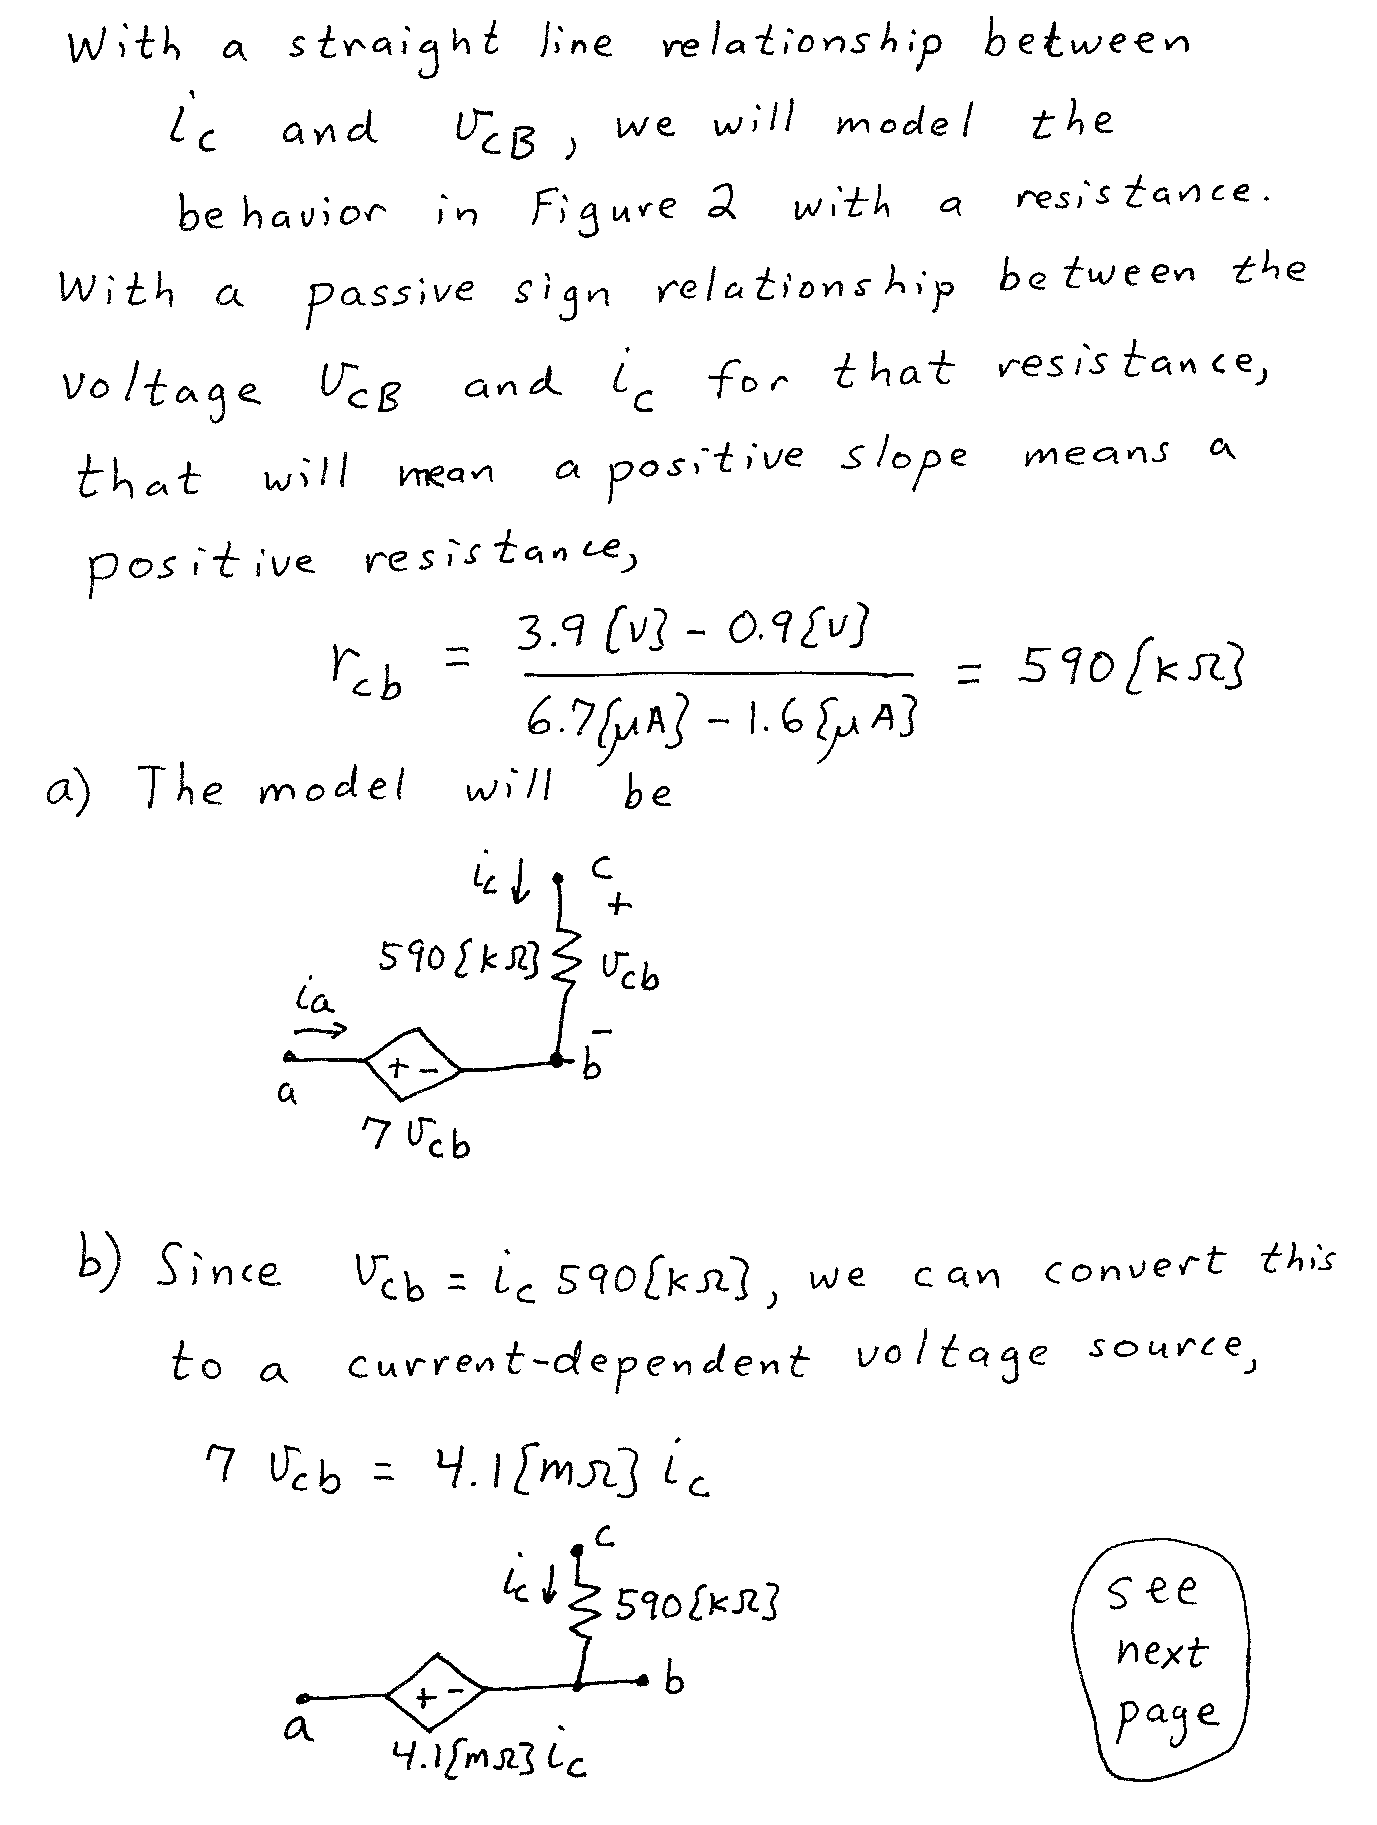 With a straight line relationship between
i_c and v_CB, we will model the
behavior in Figure 2 with a resistance.
With a passive sign relationship between the
voltage v_CB and i_c for that resistance,
that will mean a positive slope means a
positive resistance,
r_cb = (3.9 {V} - 0.9 {V}) / (6.7 {μA} - 1.6 {μA}) = 590 {kΩ}
a) The model will be
i_c ↓ c
+
590 {kΩ} v_cb
i_a →
-
a + - b
7 v_cb
b) Since v_cb = i_c 590 {kΩ}, we can convert this
to a current-dependent voltage source,
7 v_cb = 4.1 {mΩ} i_c
c
i_c ↓ 590 {kΩ}
a + - b
4.1 {mΩ} i_c
see
next
page